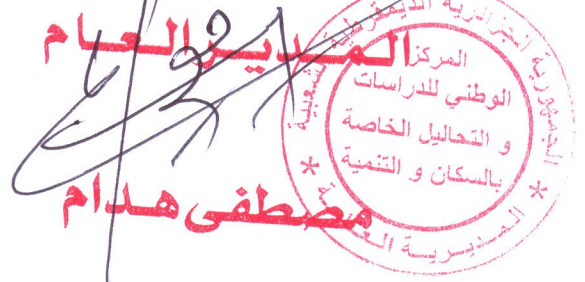 المدير العام
مصطفى هدام
الجمهورية الجزائرية الديمقراطية الشعبية
المركز
الوطني للدراسات
و التحاليل الخاصة
بالسكان و التنمية
المديرية العامة